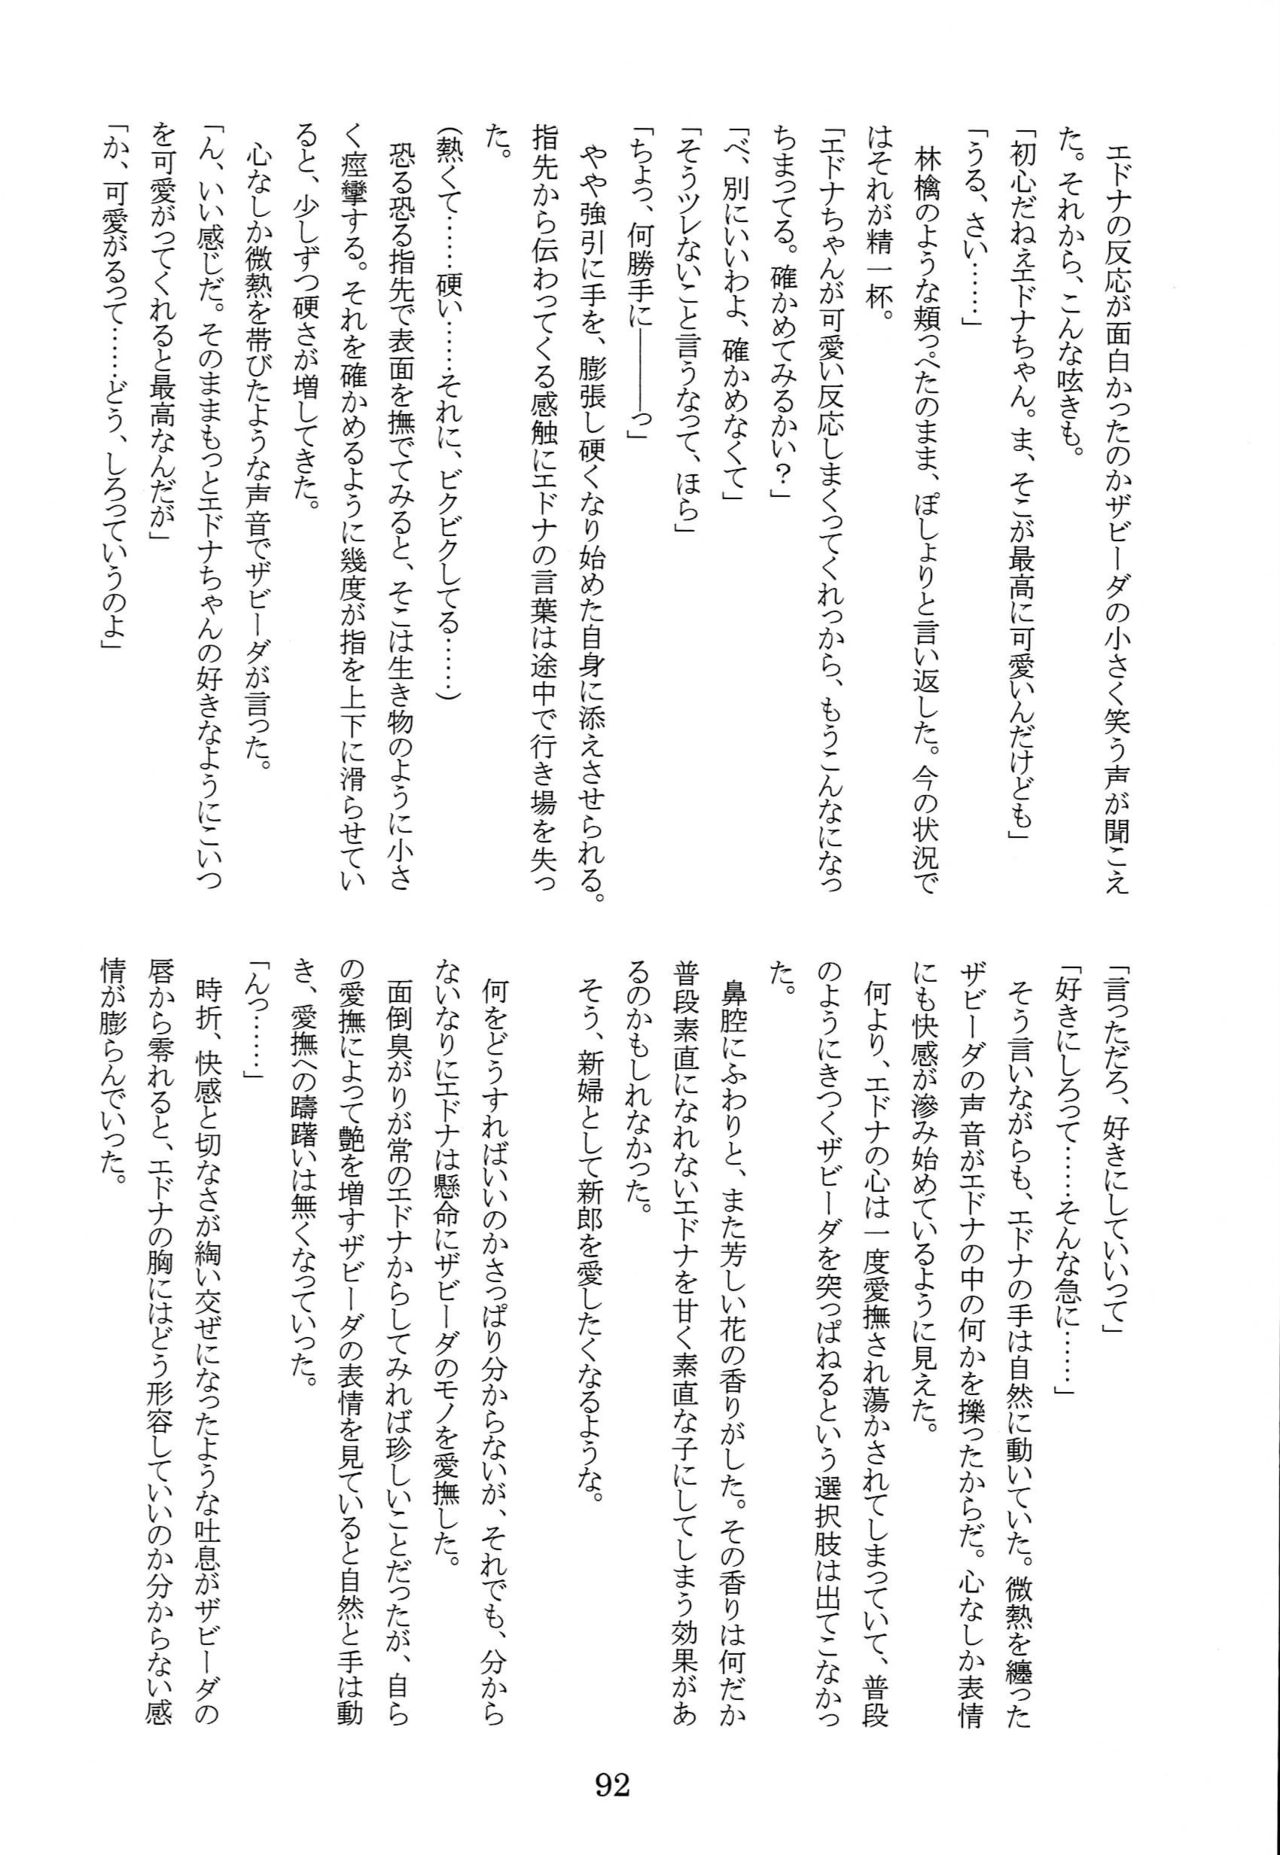 エドナの反応が面白かったのかザビーダの小さく笑う声が聞こえ
た。それから、こんな呟きも。
「初心だねぇエドナちゃん。ま、そこが最高に可愛いんだけども」
「うる、さい……」
林檎のような頬っぺたのまま、ぽしょりと言い返した。今の状況で
はそれが精一杯。
「エドナちゃんが可愛い反応しまくってくれっから、もうこんなになっ
ちまってる。確かめてみるかい？」
「べ、別にいいわよ、確かめなくて」
「そうツレないこと言うなって、ほら」
「ちょっ、何勝手に―――っ」
やや強引に手を、膨張し硬くなり始めた自身に添えさせられる。
指先から伝わってくる感触にエドナの言葉は途中で行き場を失っ
た。
（熱くて……硬い……それに、ビクビクしてる……）
恐る恐る指先で表面を撫でてみると、そこは生き物のように小さ
く痙攣する。それを確かめるように幾度が指を上下に滑らせてい
ると、少しずつ硬さが増してきた。
心なしか微熱を帯びたような声音でザビーダが言った。
「ん、いい感じだ。そのままもっとエドナちゃんの好きなようにこいつ
を可愛がってくれると最高なんだが」
「か、可愛がるって……どう、しろっていうのよ」
「言っただろ、好きにしていいって」
「好きにしろって……そんな急に……」
そう言いながらも、エドナの手は自然に動いていた。微熱を纏った
ザビーダの声音がエドナの中の何かを擽ったからだ。心なしか表情
にも快感が滲み始めているように見えた。
何より、エドナの心は一度愛撫され蕩かされてしまっていて、普段
のようにきつくザビーダを突っぱねるという選択肢は出てこなかっ
た。
鼻腔にふわりと、また芳しい花の香りがした。その香りは何だか
普段素直になれないエドナを甘く素直な子にしてしまう効果があ
るのかもしれなかった。
そう、新婦として新郎を愛したくなるような。
何をどうすればいいのかさっぱり分からないが、それでも、分から
ないなりにエドナは懸命にザビーダのモノを愛撫した。
面倒臭がりが常のエドナからしてみれば珍しいことだったが、自ら
の愛撫によって艶を増すザビーダの表情を見ていると自然と手は動
き、愛撫への躊躇いは無くなっていった。
「んっ……」
時折、快感と切なさが綯い交ぜになったような吐息がザビーダの
唇から零れると、エドナの胸にはどう形容していいのか分からない感
情が膨らんでいった。
92